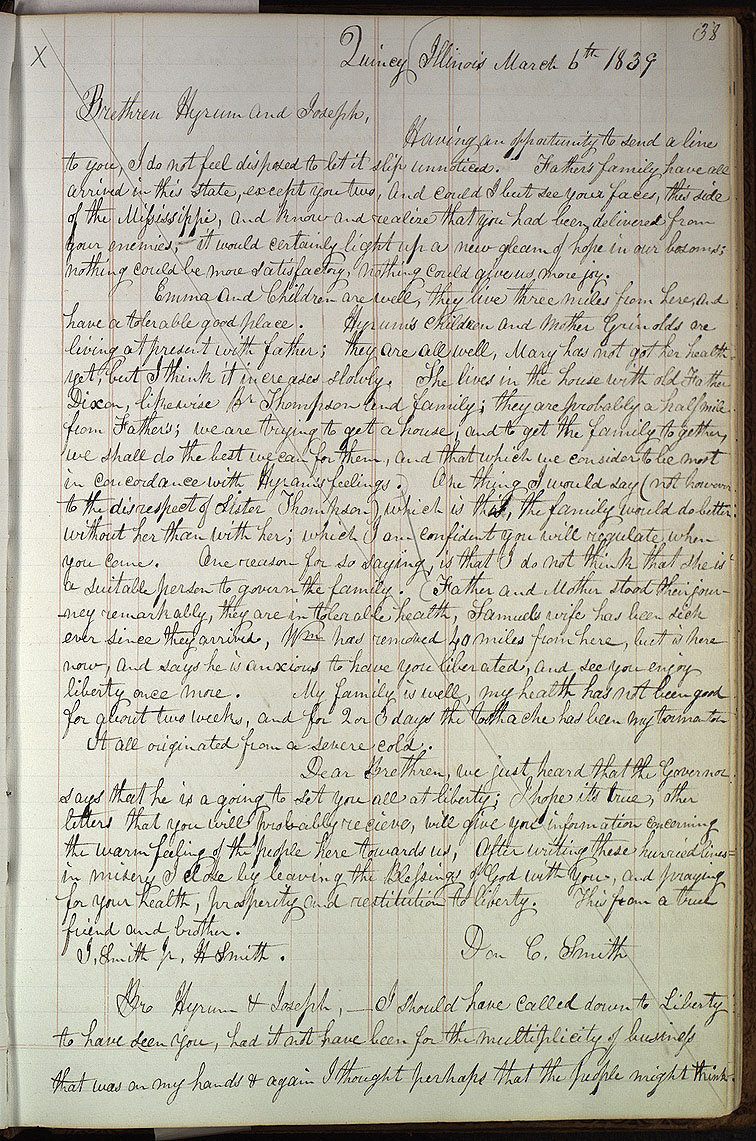 38
X
Quincy Illinois March 6th 1839
Brethren Hyrum and Joseph,
Having an opportunity to send a line
to you, I do not feel disposed to let it slip unnoticed. Father's family have all
arrived in this State, except you two, and could I but see your faces, this side
of the Mississippi, and know and realize that you had been delivered from
your enemies, it would certainly light up a new gleam of hope in our bosoms;
nothing could be more satisfactory, nothing could give us more joy.
Emma and Children are well, they live three miles from here, and
have a tolerable good place. Hyrum's children and Mother Grinolds are
living at present with father; they are all well, Mary has not got her health
yet, but I think it increases slowly. She lives in the house with old Father
Dixon, likewise Br Thompson and family; they are probably a half mile
from Father's; we are trying to get a house, and to get the family together,
we shall do the best we can for them, and that which we consider to be most
in concordance with Hyram's feelings. One thing I would say (not however
to the disrespect of Sister Thompson) which is this, the family would do better
without her than with her; which I am confident you will regulate when
you come. One reason for so saying, is that I do not think that she is
a suitable person to govern the family. Father and Mother stood their jour-
ney remarkably, they are in tolerable health, Samuels wife has been sick
ever since they arrived, Wm has removed 40 miles from here, but is here
now, and says he is anxious to have you liberated, and see you enjoy
liberty once more. My family is well, my health has not been good
for about two weeks, and for 2 or 3 days the toothache has been my tormentor
It all originated from a severe cold.
Dear Brethren, we just heard that the Governor
says that he is a going to set you all at liberty; I hope its true, other
letters that you will probably recieve, will give you information concerning
the warm feeling of the people here towards us, After writing these hurried lines
in misery I close by leaving the Blessings of God with you, and praying
for your health, prosperity and restitution to liberty. This from a true
friend and brother.
J. Smith Jr, H Smith. Don C. Smith
Bro Hyrum & Joseph, — I should have called down to Liberty
to have seen you, had it not have been for the multiplicity of business
that was on my hands & again I thought perhaps that the people might think